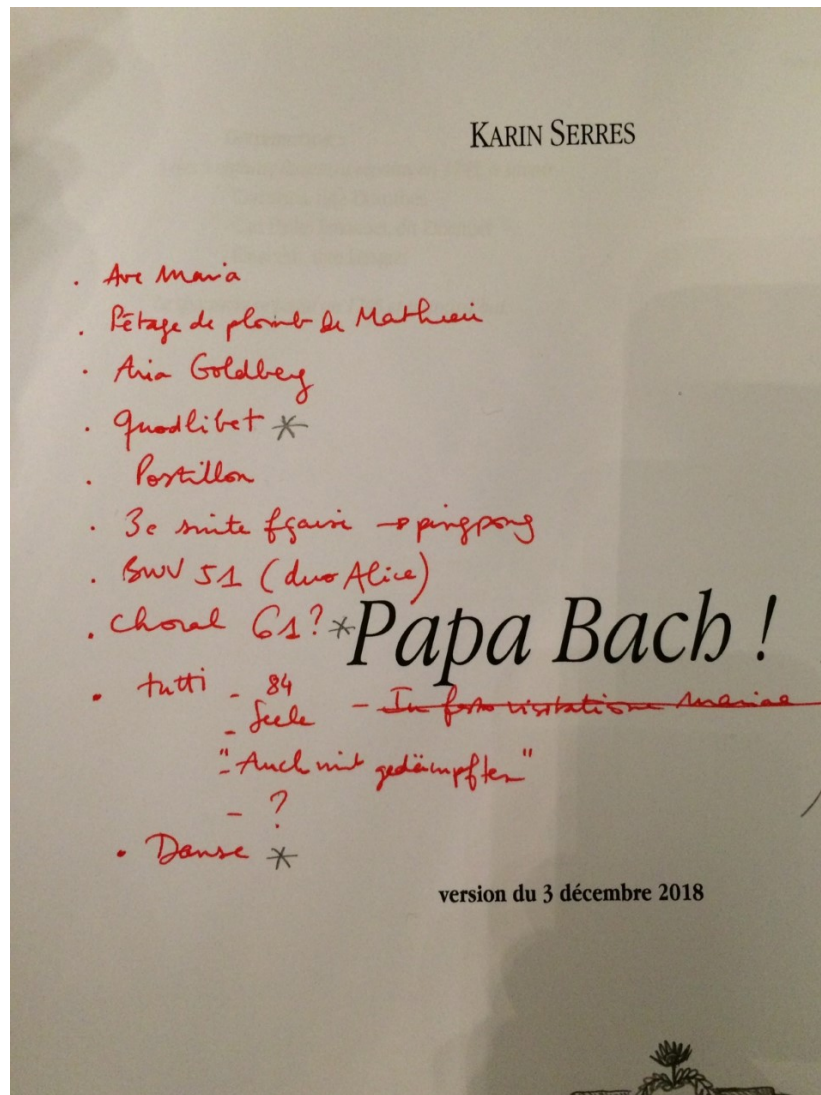 KARIN SERRES
. Ave Maria
. Pétage de plomb de Mathieu
. Aria Goldberg
. Quodlibet *
. Postillon
. 3e suite fçaise → pingpong
. BWV 51 (duo Alice)
. Choral 61? *
Papa Bach !
. tutti - 84
- Seele - In festo visitationis Mariae
"- Auch mit gedämpften"
- ?
. Danse *
version du 3 décembre 2018